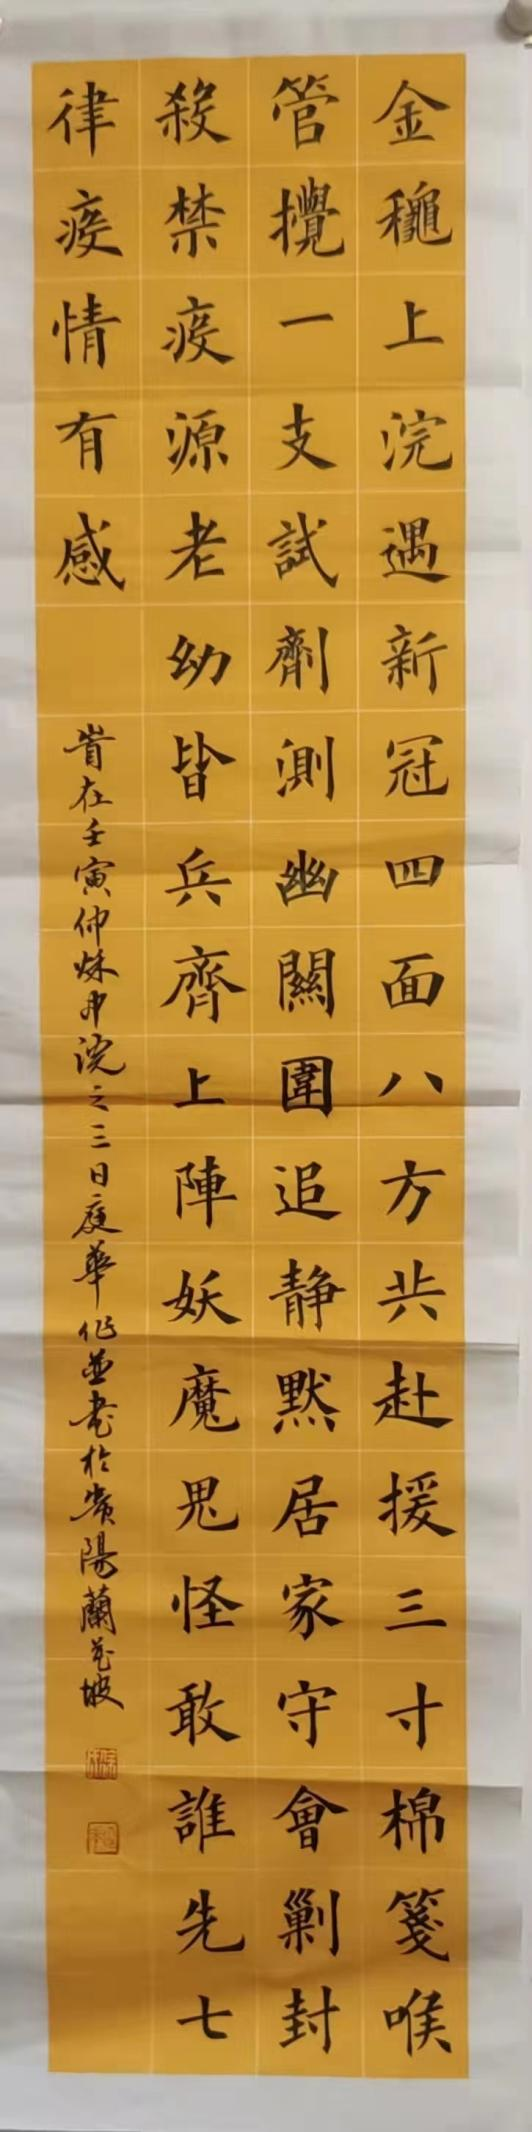 金穐上浣遇新冠四面八方共赴援三寸棉箋喉
管攪一支試劑測幽關圍追静默居家守會剿封
殺禁疫源老幼皆兵齊上陣妖魔鬼怪敢誰先七
律疫情有感
旹在壬寅仲烁中浣之三日庭華作並书於贵陽蘭花坡